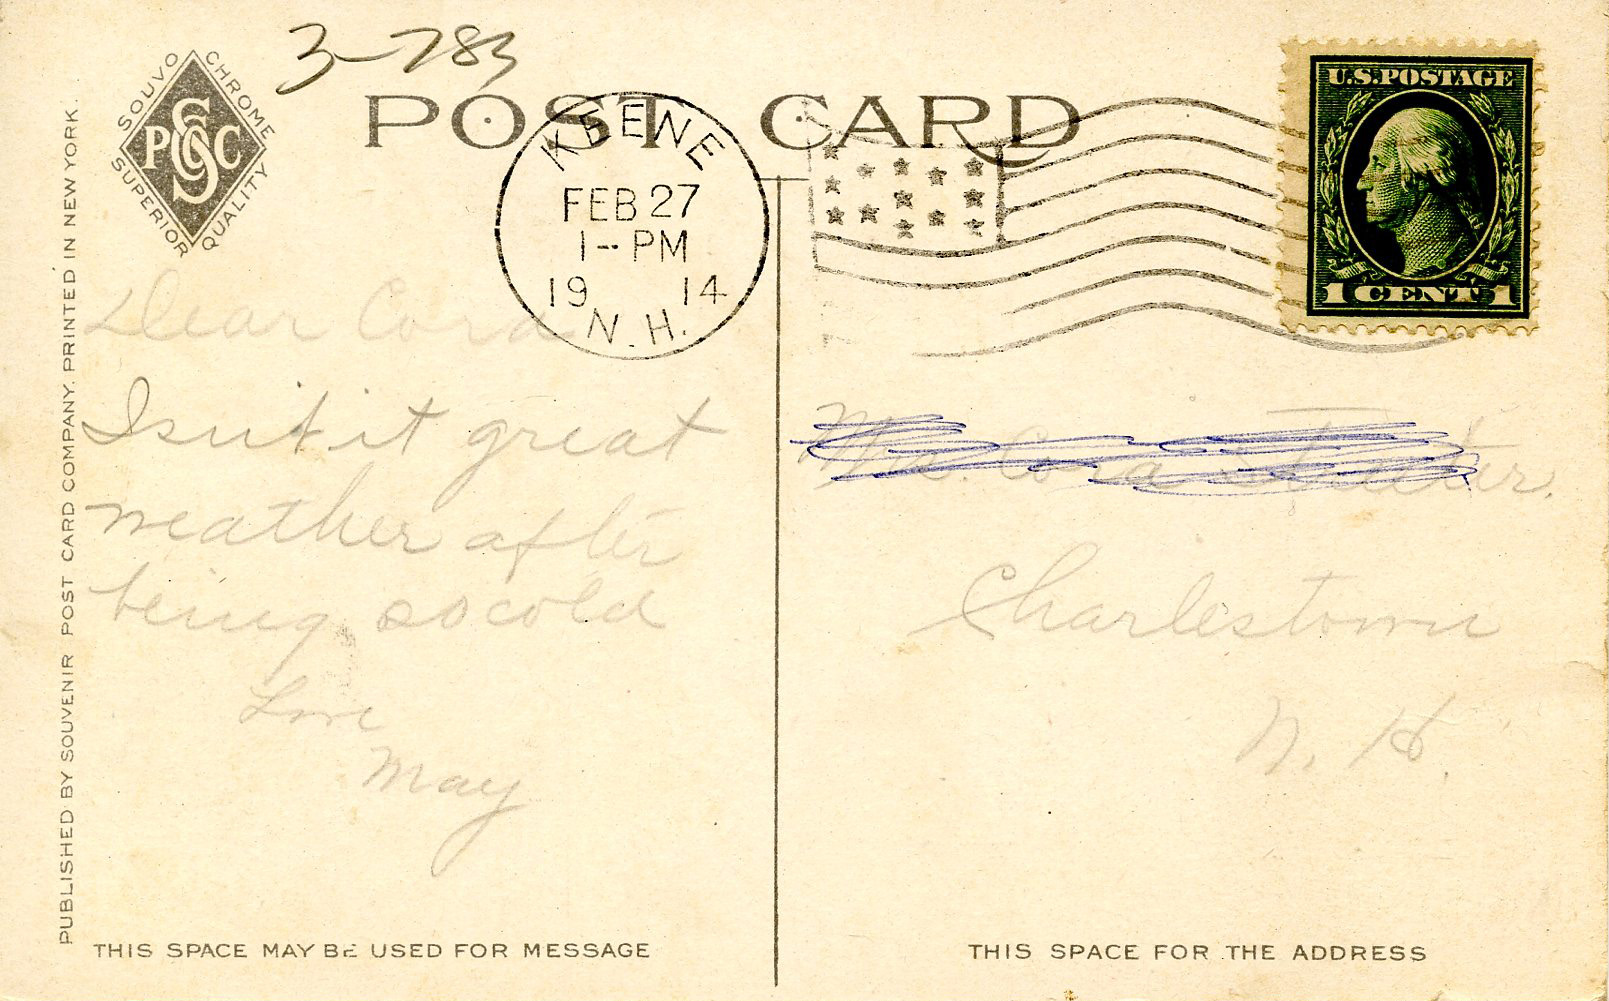 3-783
SOUVO CHROME
PSC Co
SUPERIOR QUALITY
POST CARD
KEENE
FEB 27
1-- PM
19 14
N.H.
U.S.POSTAGE
1 CENT 1
Dear Cora
Isn't it great
weather after
being so cold
Love
May
Cora
Charlestown
N. H.
PUBLISHED BY SOUVENIR POST CARD COMPANY. PRINTED IN NEW YORK.
THIS SPACE MAY BE USED FOR MESSAGE
THIS SPACE FOR THE ADDRESS